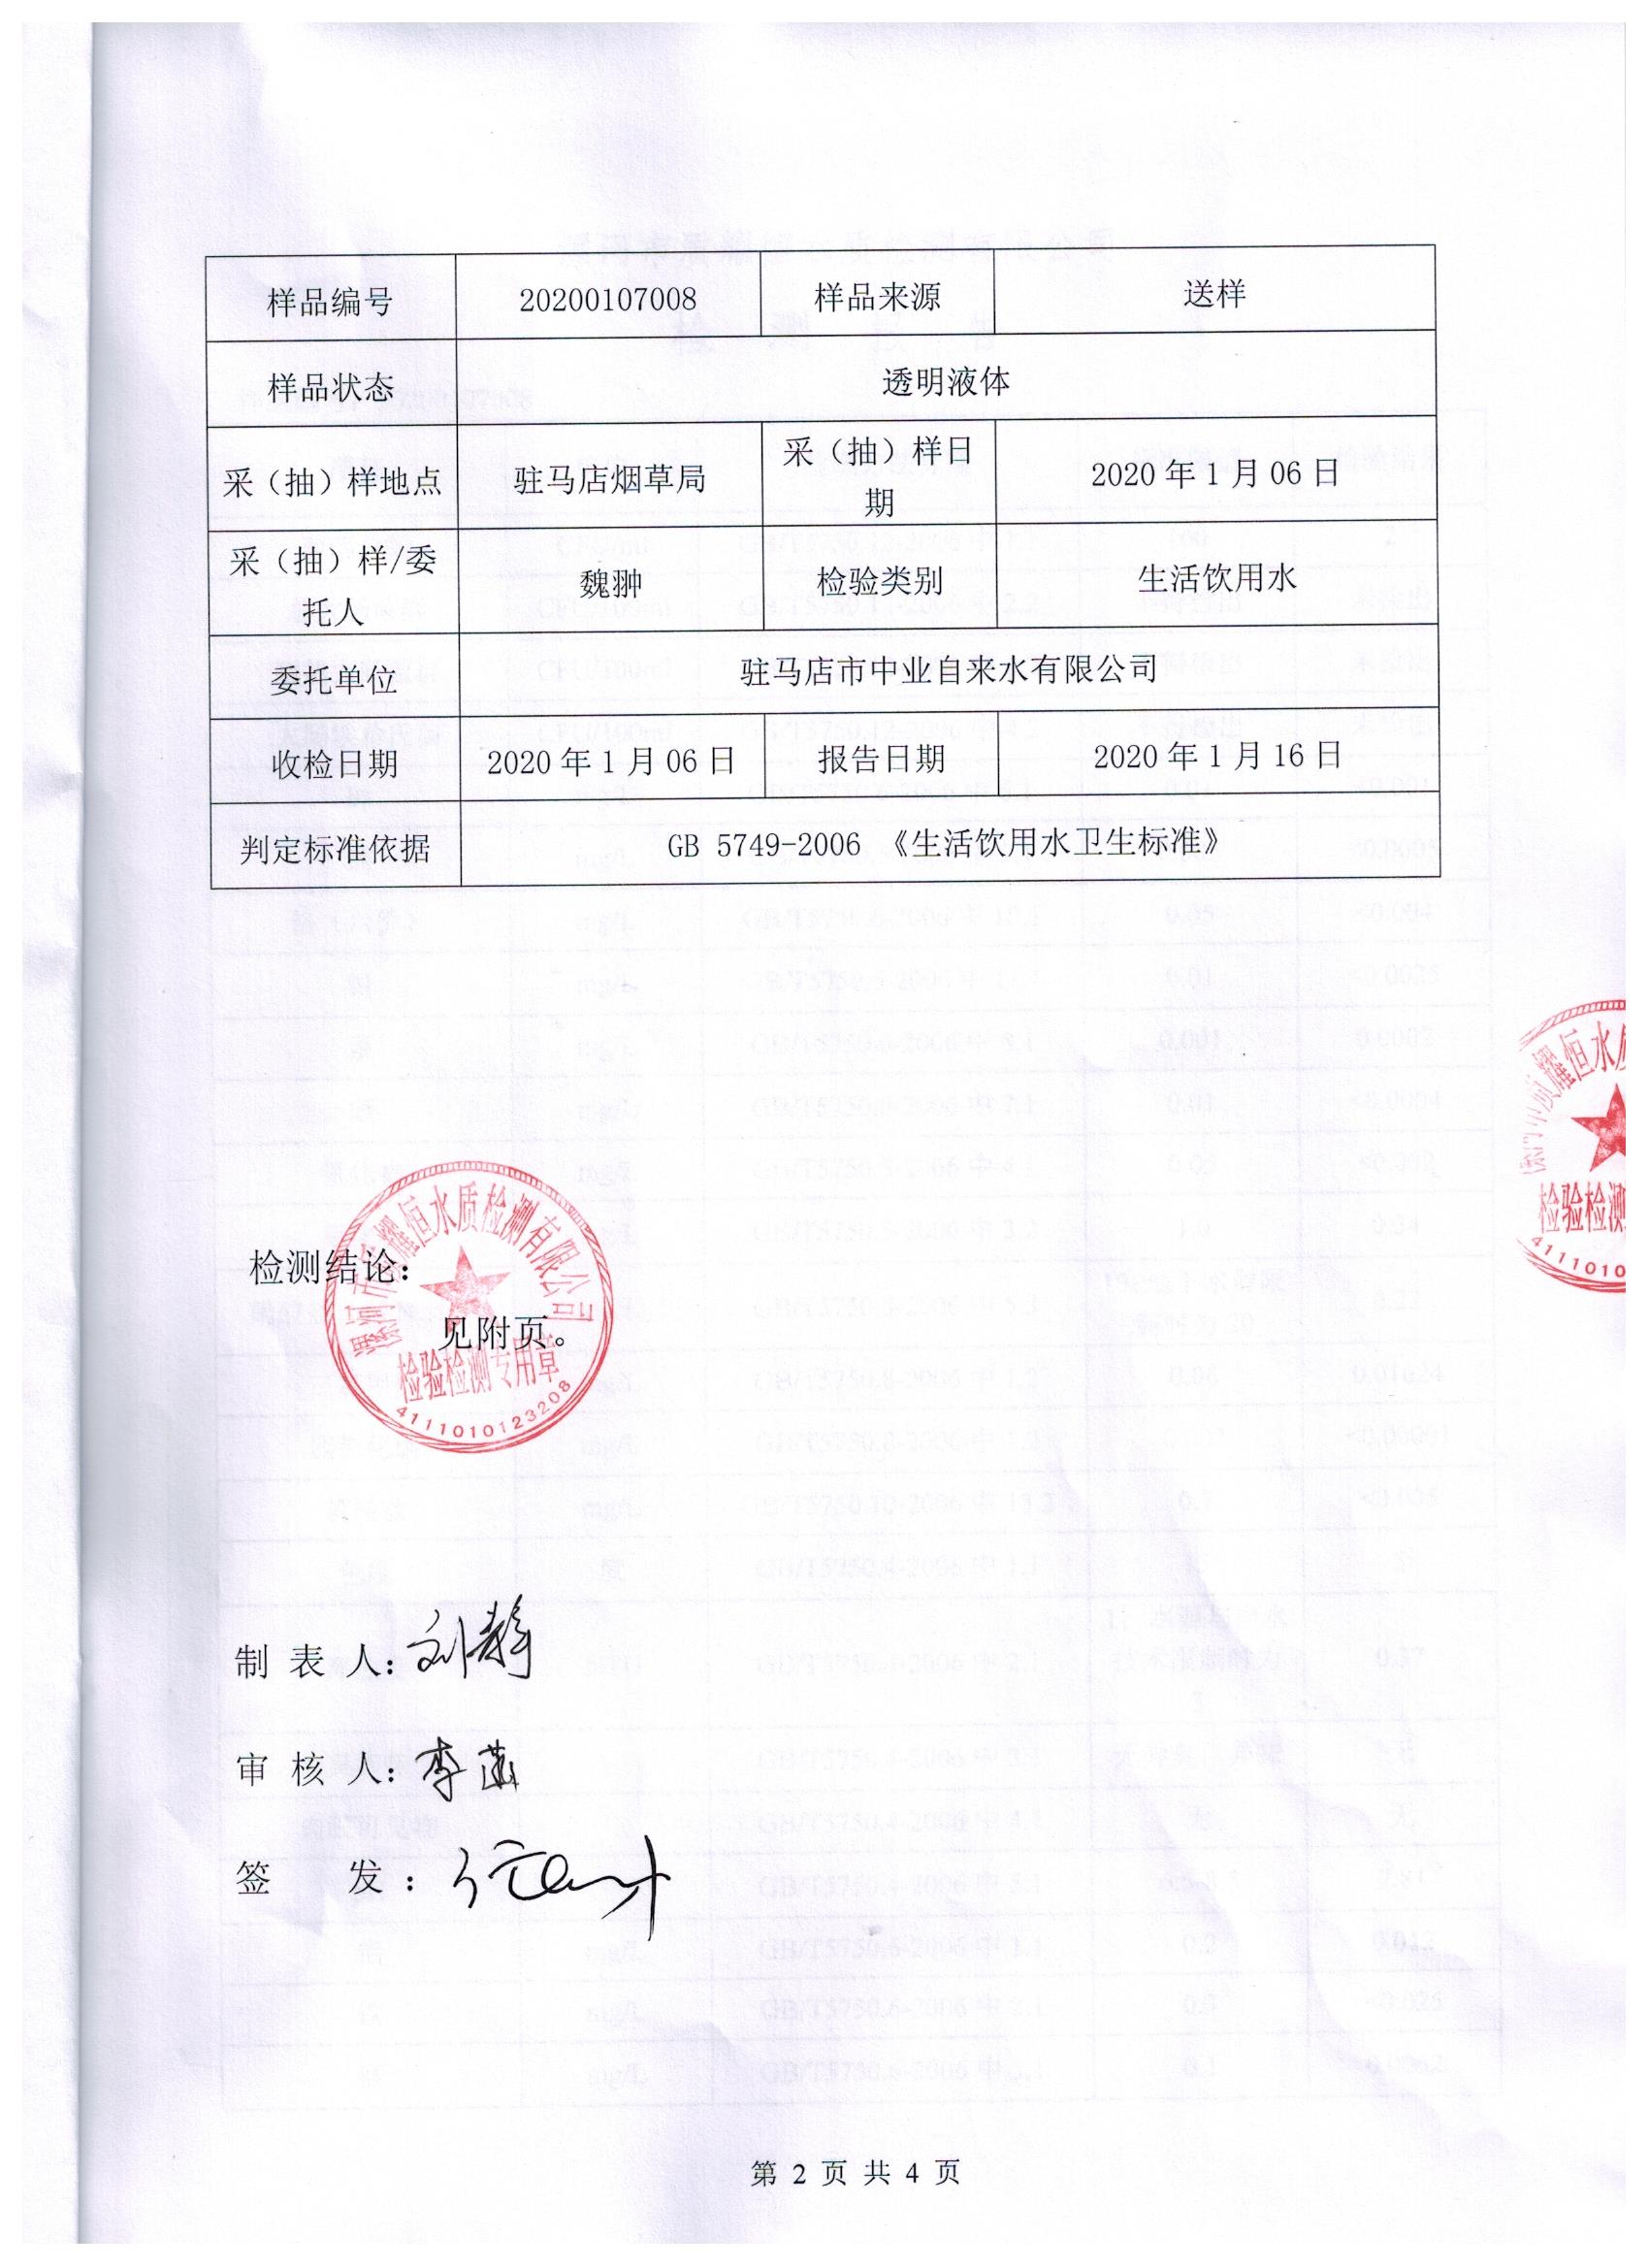 样品编号 20200107008 样品来源 送样
样品状态 透明液体
采（抽）样地点 驻马店烟草局 采（抽）样日
期 2020年1月06日
采（抽）样/委
托人 魏翀 检验类别 生活饮用水
委托单位 驻马店市中业自来水有限公司
收检日期 2020年1月06日 报告日期 2020年1月16日
判定标准依据 GB 5749-2006 《生活饮用水卫生标准》
检测结论：
见附页。
漯河市源耀恒水质检测有限公司
检验检测专用章
4111010123208
耀恒水质
检验检测
4111010
制 表 人：刘静
审 核 人：李
签 发：
第 2 页 共 4 页